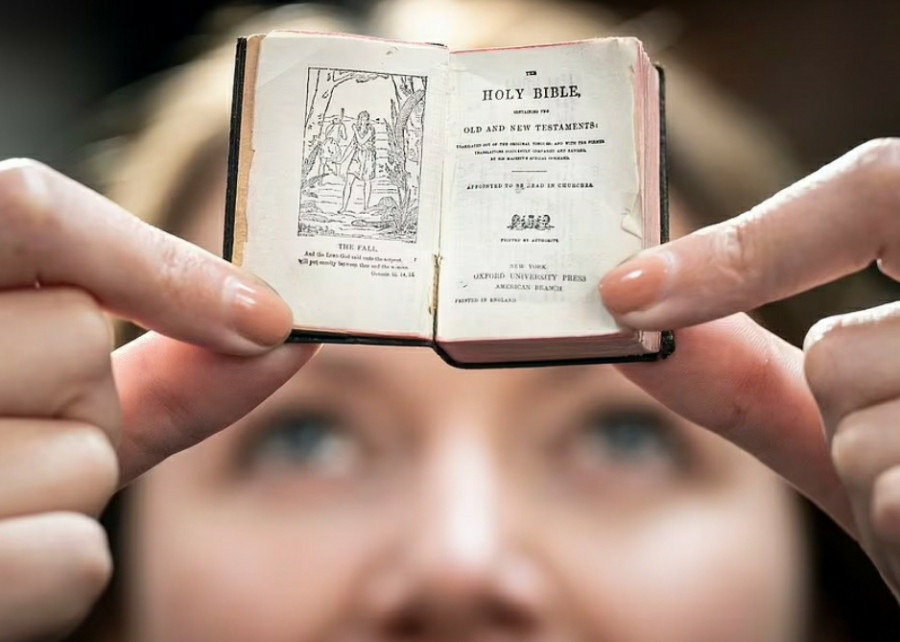 THE FALL.
And the LORD God said unto the serpent,
will put enmity between thee and the woman.
Genesis iii. 14, 15
THE
HOLY BIBLE,
CONTAINING THE
OLD AND NEW TESTAMENTS:
TRANSLATED OUT OF THE ORIGINAL TONGUES; AND WITH THE FORMER
TRANSLATIONS DILIGENTLY COMPARED AND REVISED,
BY HIS MAJESTY'S SPECIAL COMMAND.
APPOINTED TO BE READ IN CHURCHES
PRINTED BY AUTHORITY
NEW YORK:
OXFORD UNIVERSITY PRESS
AMERICAN BRANCH
PRINTED IN ENGLAND